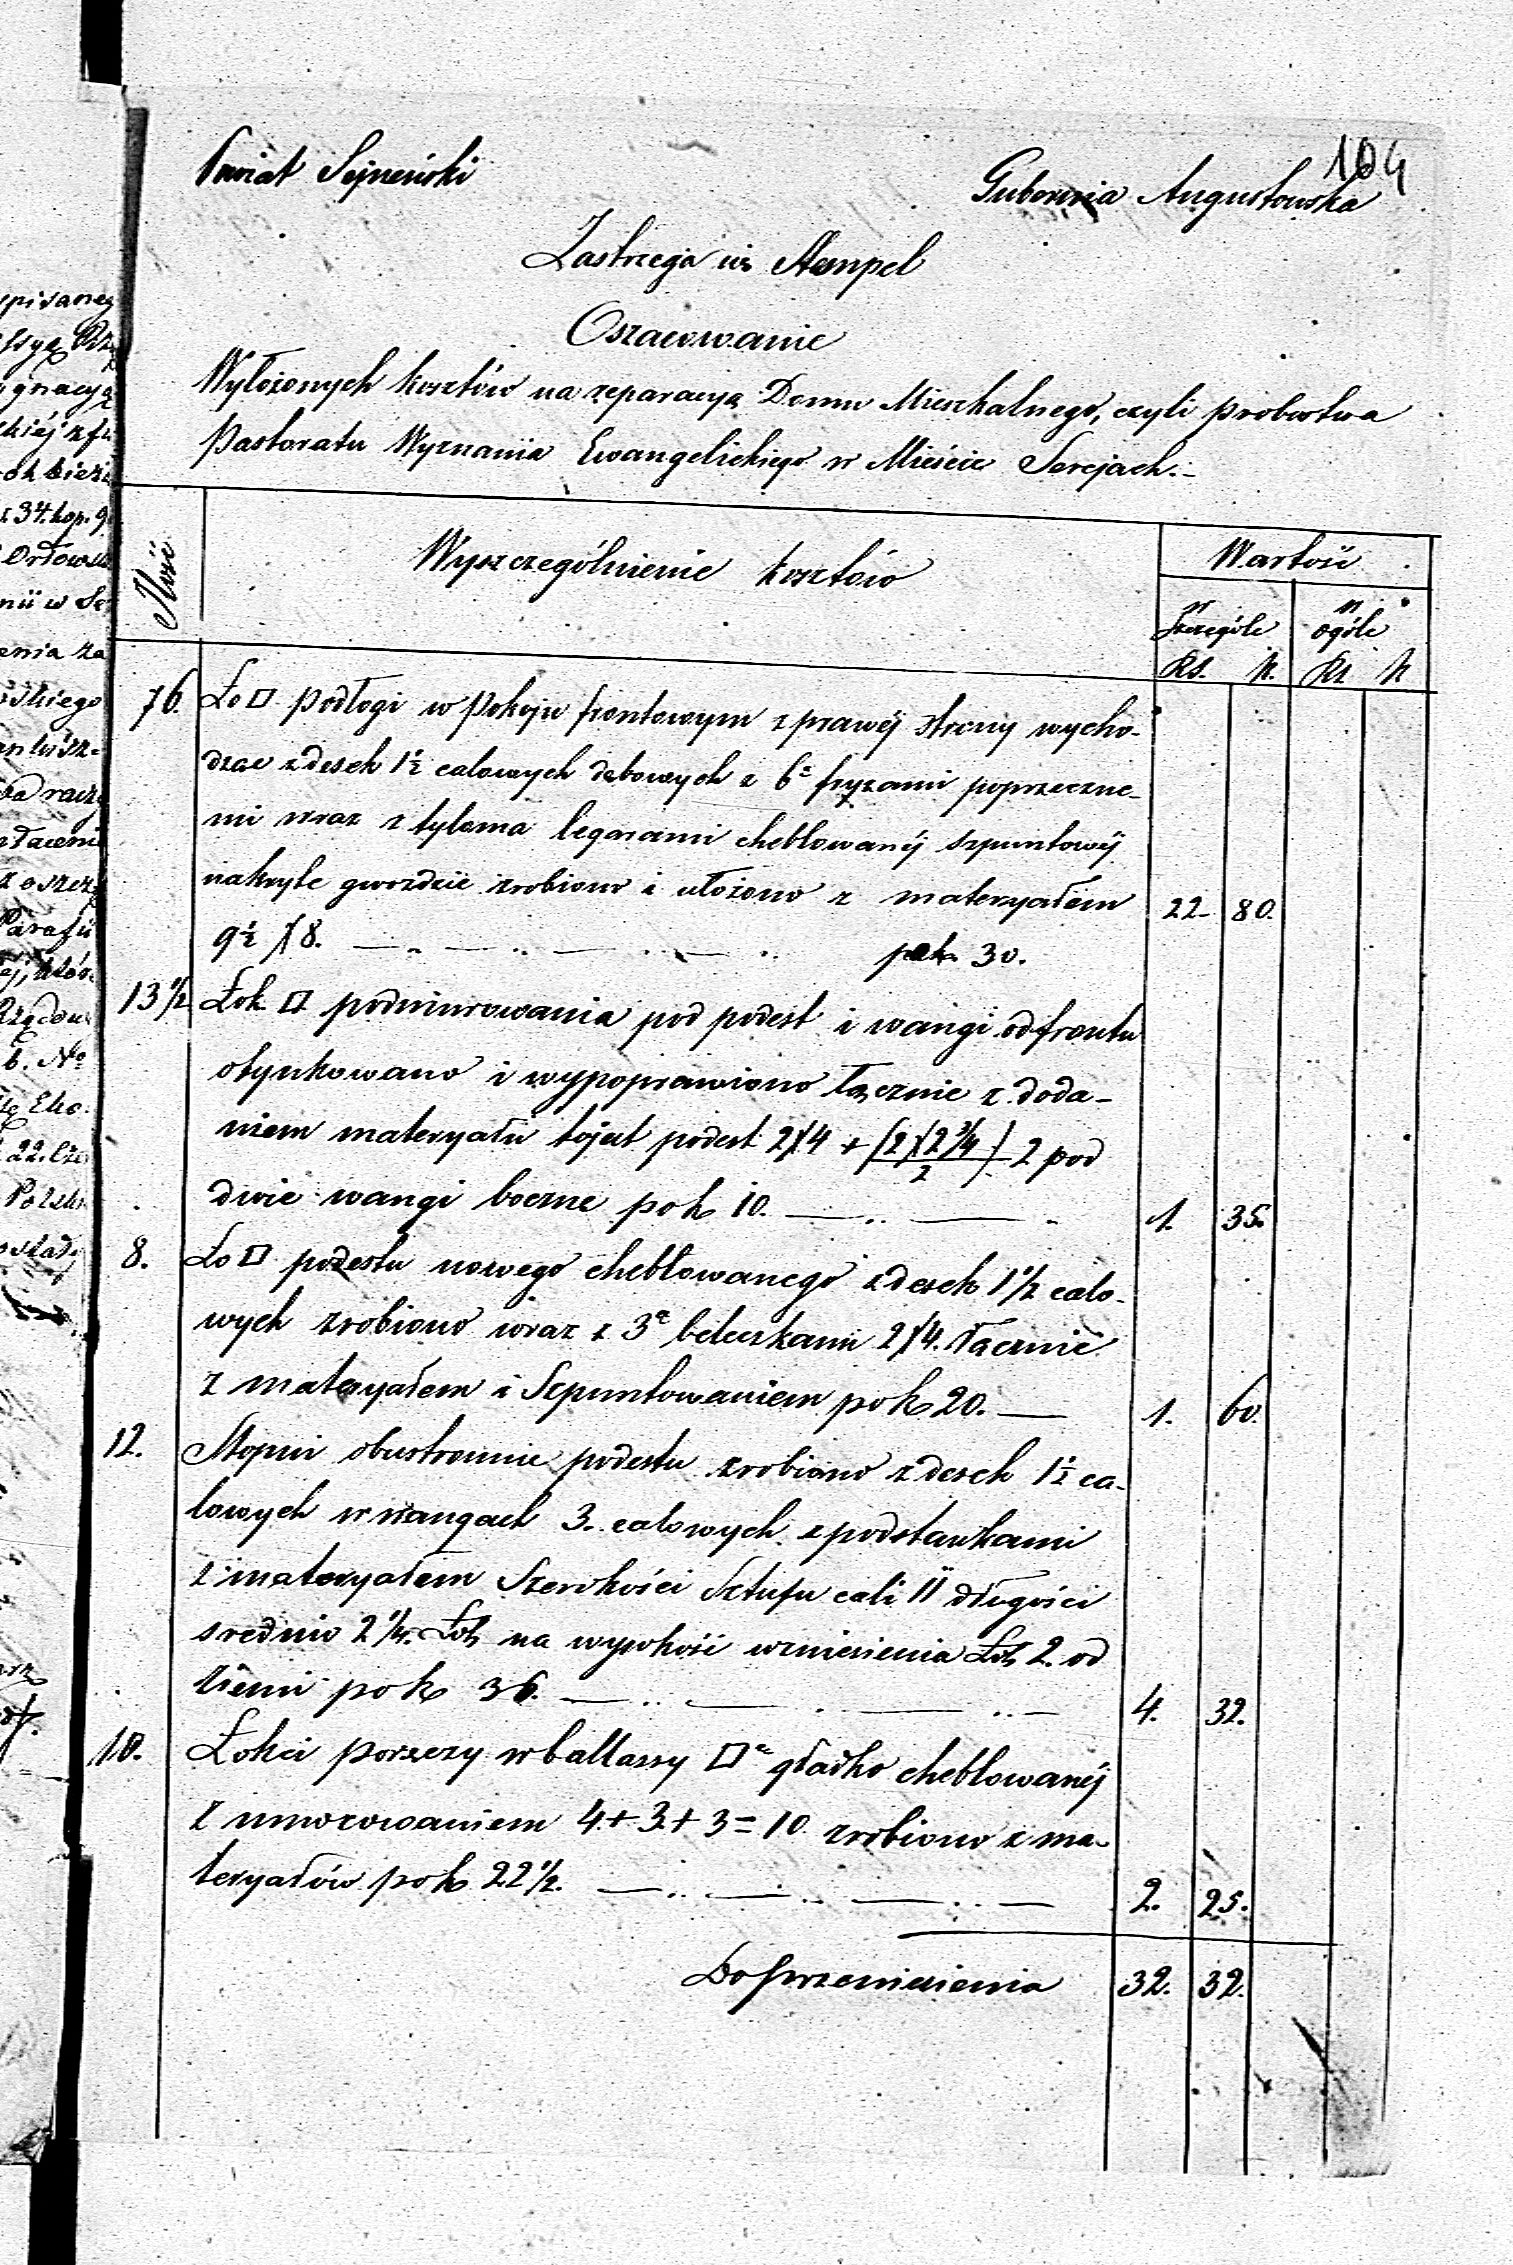 104
Powiat Sejneński
Gubernia Augustowska
Zastrzega się Stempel
Oszacowanie
Wyłożonych kosztów na reparacyą Domu Mieszkalnego, czyli probostwa
Pastoratu Wyznania Ewangelickiego w Mieście Serejach.-
Ilość
Wyszczególnienie kosztów
Wartość
w szczególe
w ogóle
Rs. k. Rs. k
76. Ło □ podłogi w pokoju frontowym z prawéj strony wycho-
dząc z desek 1½ calowych dębowych z 6ª fryzami poprzeczne-
mi wraz z tylema legarami cheblowanéj szpuntowéj
nakryte gwoździe zrobiono i ułożono z materyałem 22- 80.
9½ X 8. pok 30.
13½ Łok □ podmurowania pod podest i wangi od frontu
otynkowano i wypoprawiono łącznie z doda-
niem materyału to jest podest 2X4 + (2X2¾/2) 2 pod
dwie wangi boczne po k 10. 1. 35.
8. Ło □ podestu nowego cheblowanego z desek 1½ calo-
wych zrobiono wraz z 3ª beleczkami 2X4. łącznie
z materyałem i Szpuntowaniem po k 20. 1. 60.
12. Stopni obustronnie podestu zrobiono z desek 1½ ca-
lowych w wangach 3. calowych z podstawkami
z materyałem Szerokości Sztufu cali 11 długości
srednio 2¼. Łok na wysokość wzniesienia Łok 2. od
ziemi po k 36. 4. 32.
10. Łokci poręczy w ballassy □ª gładko cheblowanéj
z umocowaniem 4+3+3=10 zrobiono z ma-
teryałów po k 22½. 2. 25.
Do przeniesienia 32. 32.